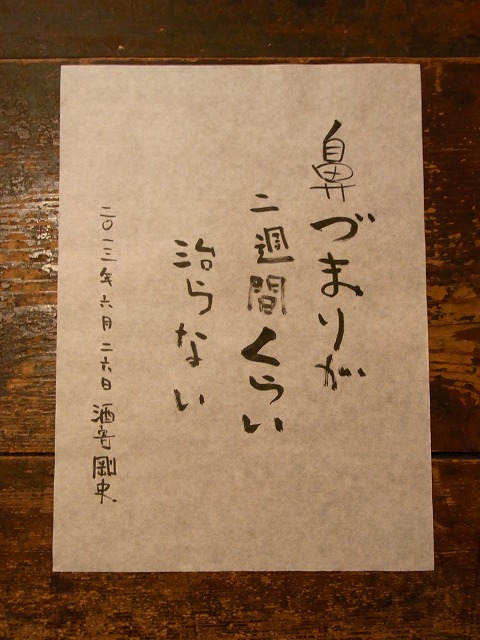 鼻づまりが
二週間くらい
治らない
二〇一三年六月二六日 酒寄剛史